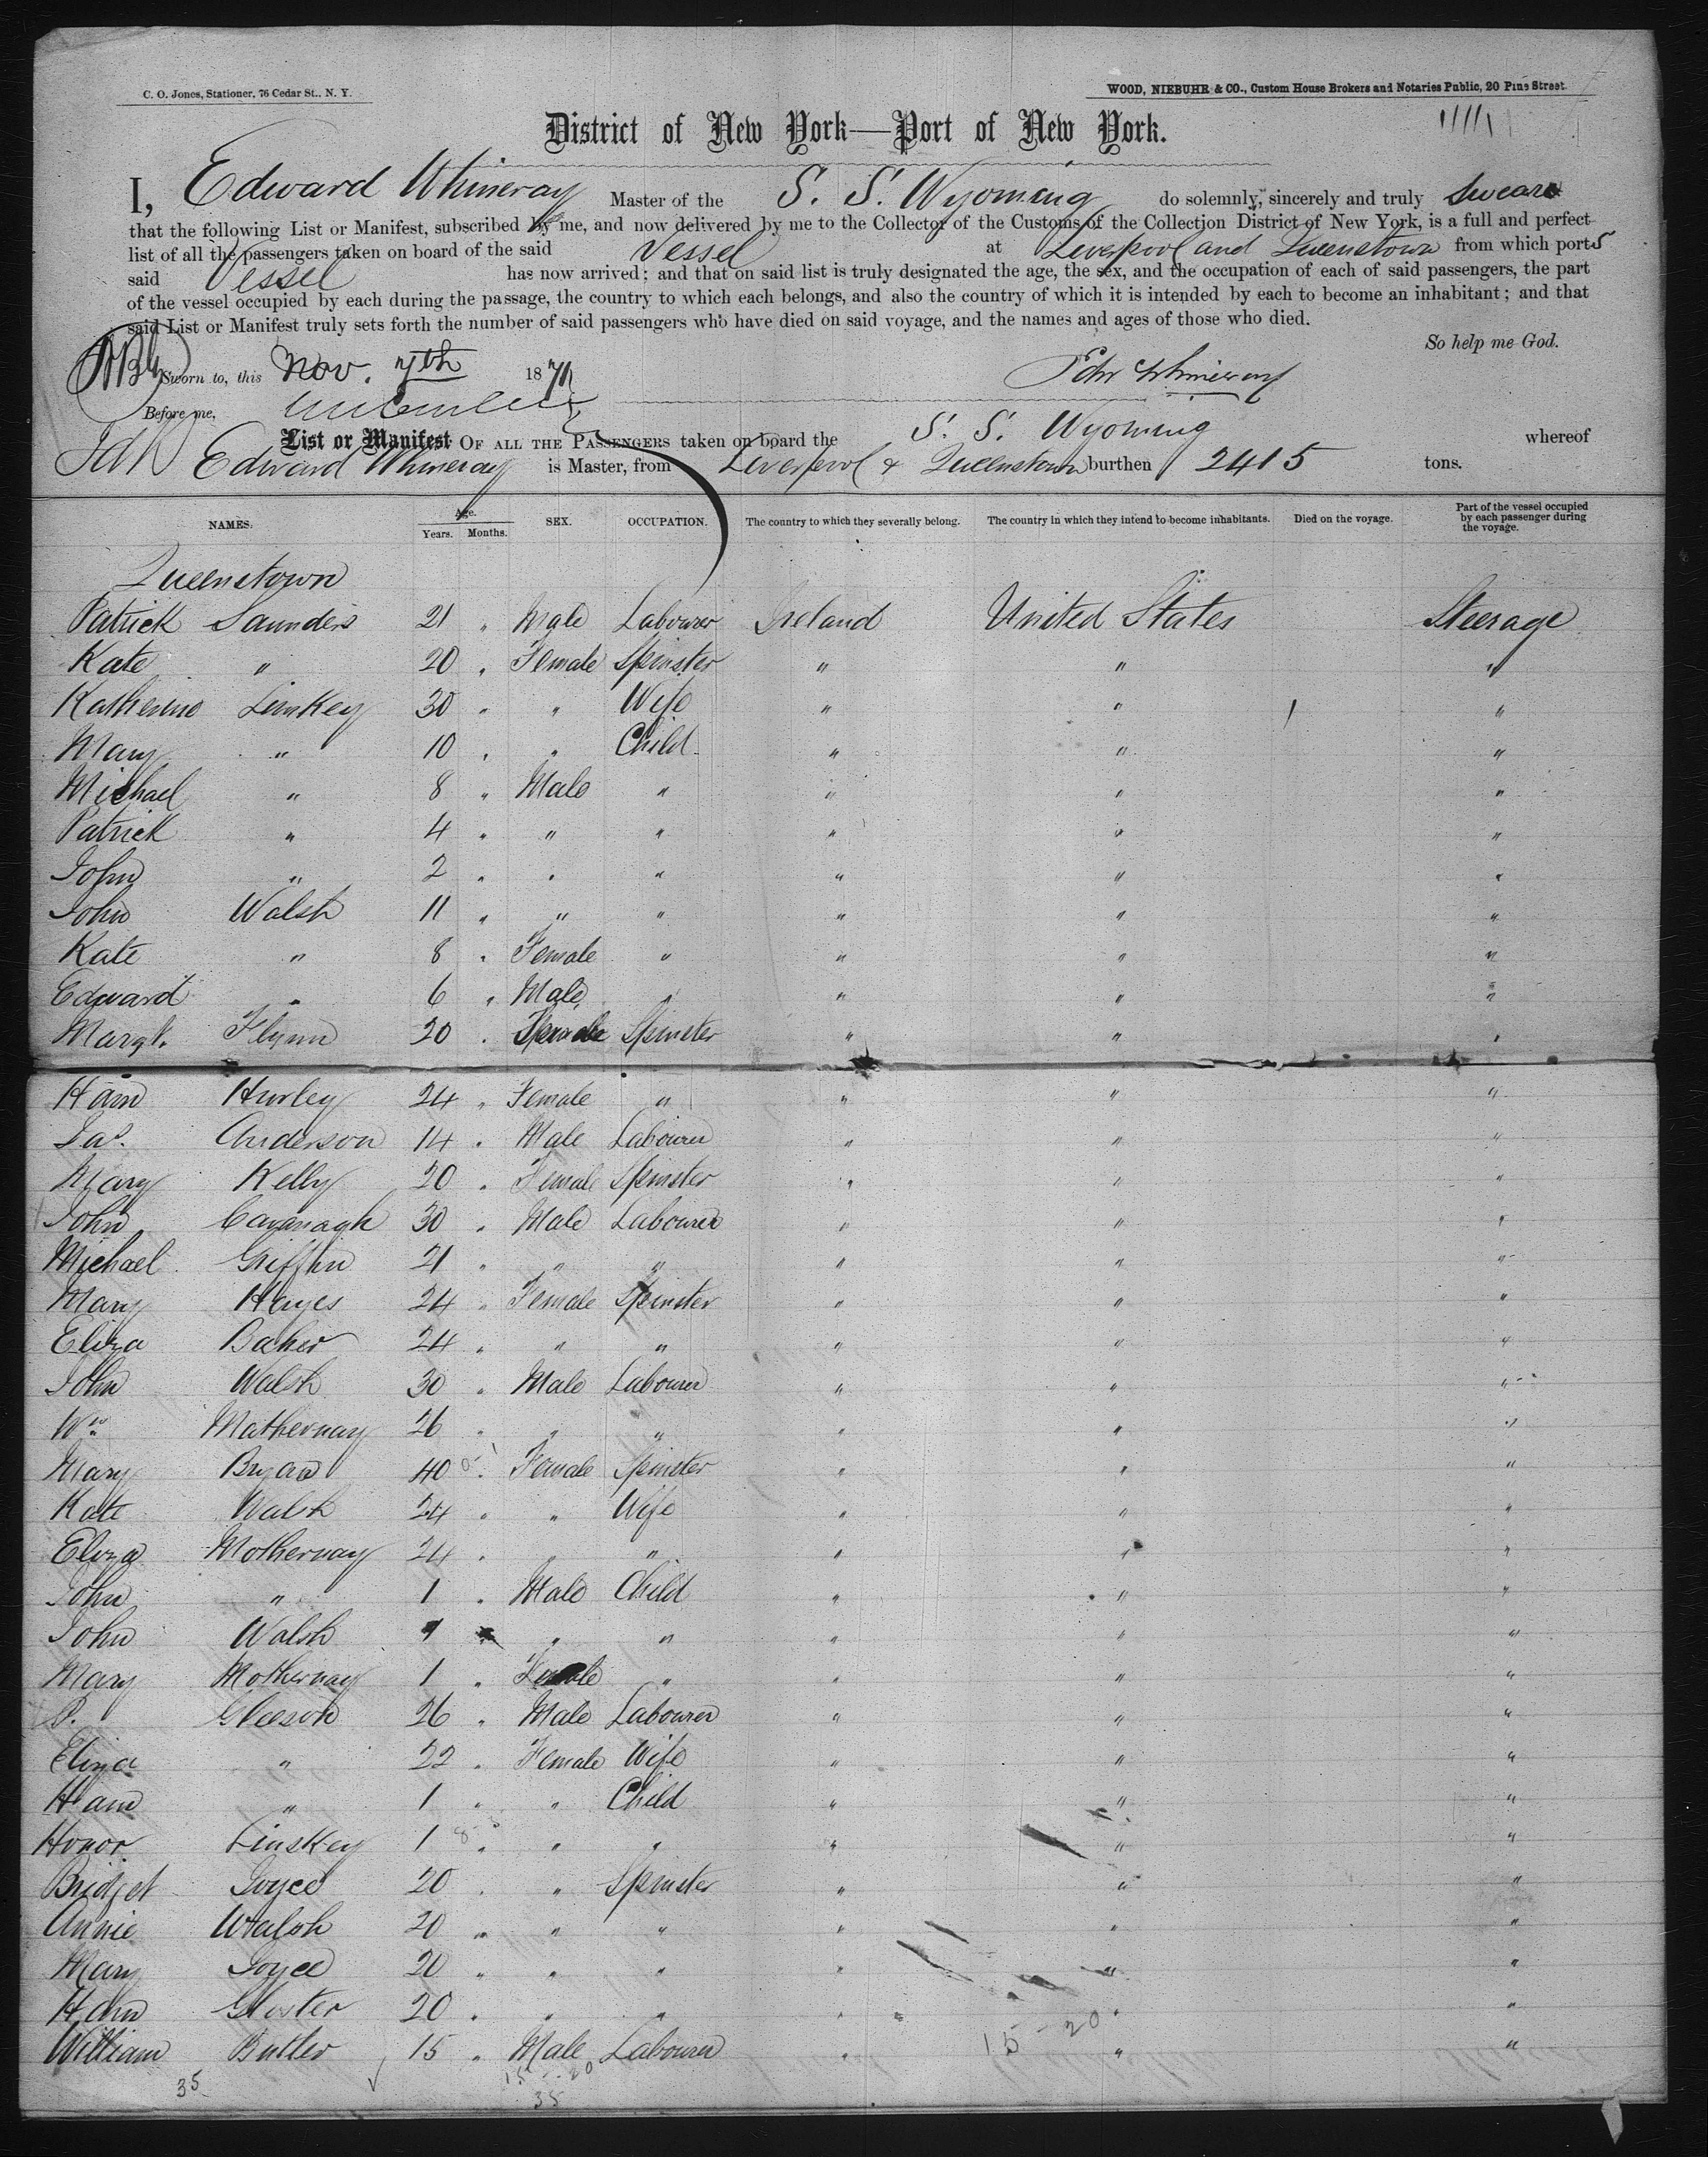 C. O. Jones, Stationer, 76 Cedar St., N. Y.
WOOD, NIEBUHR & CO., Custom House Brokers and Notaries Public, 20 Pine Street.
District of New York—Port of New York.
I, Edward Whineray Master of the S. S. Wyoming do solemnly, sincerely and truly swear
that the following List or Manifest, subscribed by me, and now delivered by me to the Collector of the Customs of the Collection District of New York, is a full and perfect
list of all the passengers taken on board of the said Vessel at Liverpool and Queenstown from which ports
said Vessel has now arrived; and that on said list is truly designated the age, the sex, and the occupation of each of said passengers, the part
of the vessel occupied by each during the passage, the country to which each belongs, and also the country of which it is intended by each to become an inhabitant; and that
said List or Manifest truly sets forth the number of said passengers who have died on said voyage, and the names and ages of those who died.
So help me God.
Sworn to, this Nov. 7th 187
Edw Whineray
Before me,
List or Manifest OF ALL THE PASSENGERS taken on board the S. S. Wyoming whereof
Edward Whineray is Master, from Liverpool & Queenstown burthen 2415 tons.
NAMES. Age. Years. Months. SEX. OCCUPATION. The country to which they severally belong. The country in which they intend to become inhabitants. Died on the voyage. Part of the vessel occupied by each passenger during the voyage.
Queenstown
Patrick Saunders 21 " Male Labourer Ireland United States Steerage
Kate " 20 " Female Spinster " " "
Katherine Linskey 30 " " Wife " " "
Mary " 10 " " Child " " "
Michael " 8 " Male " " " "
Patrick " 4 " " " " " "
John " 2 " " " " " "
John Walsh 11 " " " " " "
Kate " 8 " Female " " " "
Edward " 6 " Male " " " "
Margt. Flynn 20 " Female Spinster " " "
Hann Hurley 24 " Female " " " "
Jas. Anderson 14 " Male Labourer " " "
Mary Kelly 20 " Female Spinster " " "
John Cavanagh 30 " Male Labourer " " "
Michael Griffin 21 " " " " " "
Mary Hayes 24 " Female Spinster " " "
Eliza Baker 24 " " " " " "
John Walsh 30 " Male Labourer " " "
Wm Mathernay 26 " " " " " "
Mary Bryan 40 " Female Spinster " " "
Kate Walsh 24 " " Wife " " "
Eliza Mothernay 24 " " " " " "
John " 1 " Male Child " " "
John Walsh 1 " " " " "
Mary Mothernay 1 " Female " " " "
P. Gleeson 26 " Male Labourer " " "
Eliza " 22 " Female Wife " " "
Hann " 1 " " Child " " "
Honor Linskey 1 " " " " " "
Bridget Joyce 20 " " Spinster " " "
Annie Walsh 20 " " " " " "
Mary Joyce 20 " " " " " "
Hann Gloster 20 " " " " " "
William Butler 15 " Male Labourer " " "
15 - 20
35
15 - 20
35